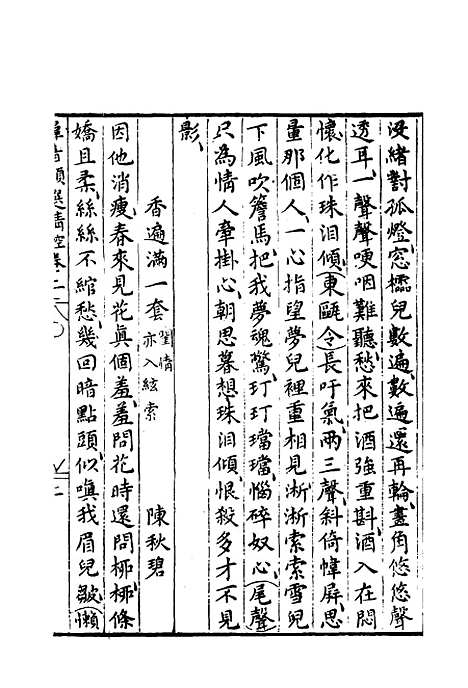 没緒對孤燈、窓櫺兒數遍、數遍還再輪、畫角悠悠聲
透耳、一聲聲哽咽難聽、愁來把酒強重斟、酒入在悶
懷化作珠泪傾、東甌令長吁氣、兩三聲斜倚幃屏、思
量那個人、一心指望夢兒裡重相見、淅淅索索雪兒
下風吹簷馬、把我夢魂驚、玎玎璫璫、惱碎奴心、尾聲
只為情人牽掛心、朝思暮想、珠泪傾、恨殺多才不見
影、
香遍滿一套 閨情 亦入絃索 陳秋碧
因他消瘦、春來見花真個羞、羞問花時還問柳、柳條
嬌且柔、絲絲不綰愁、幾回暗點頭、似嗔我眉兒皺、懶